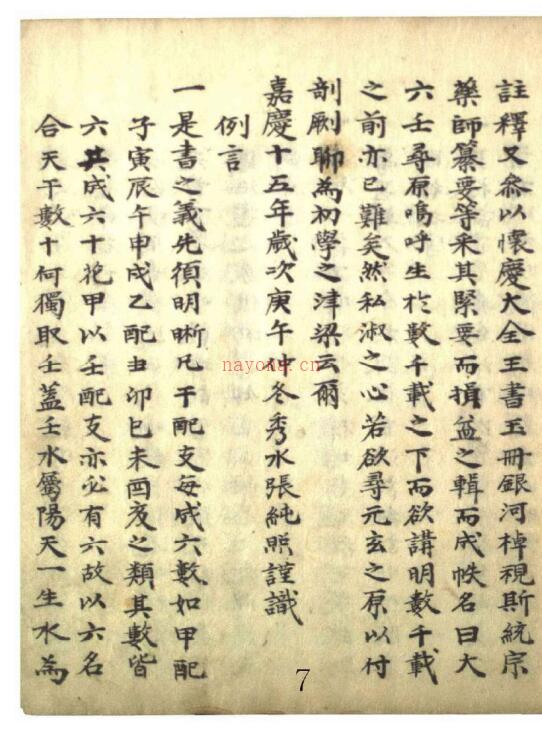 註釋又參以懷慶大全王書玉冊銀河棹視斯統宗
藥師纂要等采其緊要而損益之輯而成帙名曰大
六壬尋原嗚呼生於數千載之下而欲講明數千載
之前亦已難矣然私淑之心若欲尋元玄之原以付
剖劂聊為初學之津梁云爾
嘉慶十五年歲次庚午仲冬秀水張純照謹識
例言
一是書之義先須明晰凡干配支每成六數如甲配
子寅辰午申戌乙配丑卯巳未酉亥之類其數皆
六共成六十花甲以壬配支亦必有六故以六名
合天干數十何獨取壬蓋壬水屬陽天一生水為
nayona.cn
7